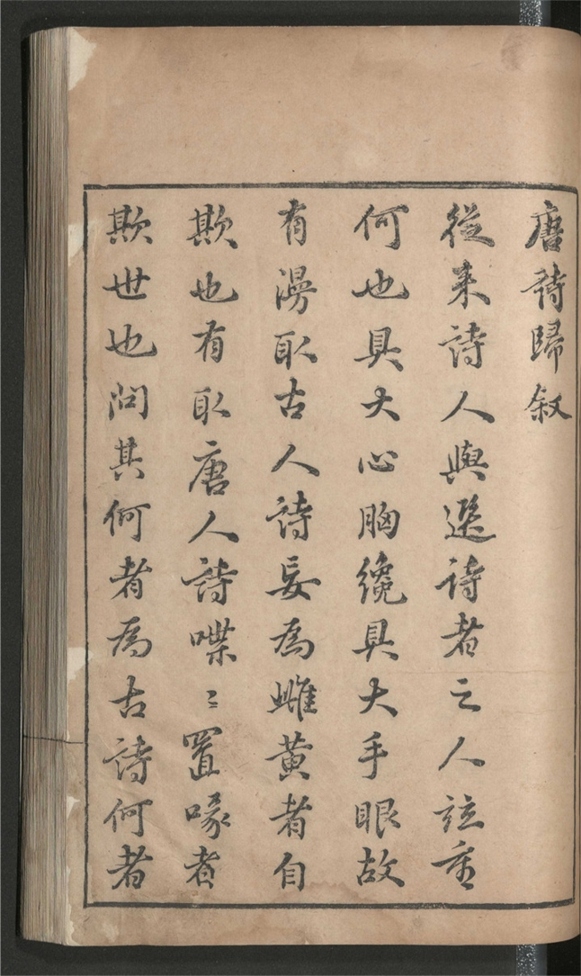 唐詩歸叙
從来詩人與選詩者之人竝重
何也具大心胸纔具大手眼故
有漫取古人詩妄為雌黃者自
欺也有取唐人詩喋〻置喙者
欺世也問其何者為古詩何者